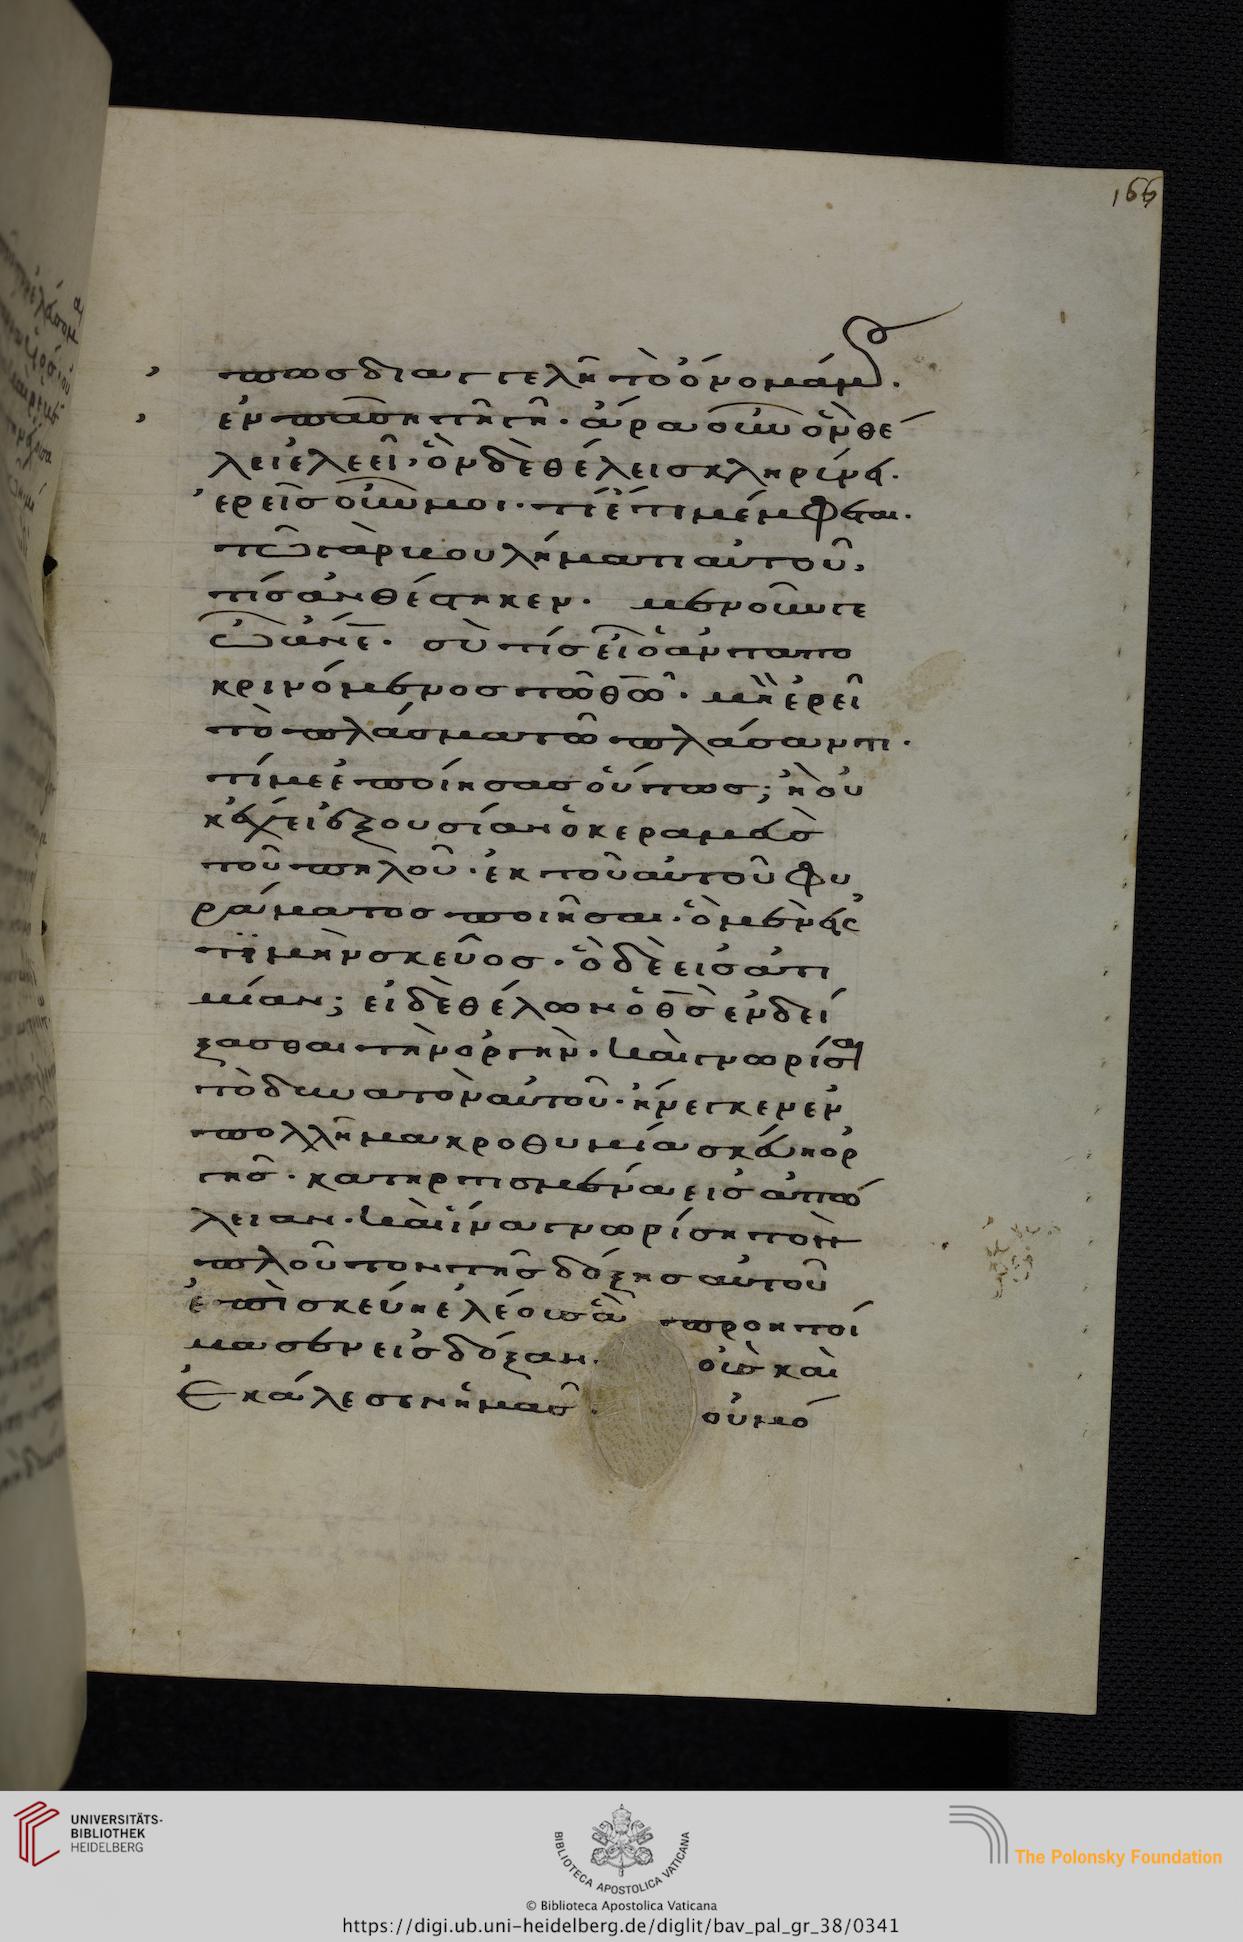 166
πως διαγγελῆ τὸ ὄνομά μου.
ἐν πάση τῆ γῆ· ἄρα οὖν ὃν θέ
λει ἐλεεῖ, ὃν δὲ θέλει σκληρύνει.
ἐρεῖς οὖν μοι· τί ἔτι μέμφεται.
τῶ γὰρ βουλήματι αὐτοῦ,
τίς ἀνθέστηκεν. μενοῦνγε
ὦ ἄνε̅. σὺ τίς εἶ ὁ ἀνταπο
κρινόμενος τῶ θω̅. μὴ ἐρεῖ
τὸ πλάσμα τῶ πλάσαντι.
τί με ἐποίησας οὕτως; ἢ οὐ
κ ἔχει ἐξουσίαν ὁ κεραμεὺς
τοῦ πηλοῦ. ἐκ τοῦ αὐτοῦ φυ
ράματος ποιῆσαι. ὃ μὲν εἰς
τιμὴν σκεῦος. ὃ δὲ εἰς ἀτι
μίαν; εἰ δὲ θέλων ὁ θς̅ ἐνδεί
ξασθαι τὴν ὀργὴν. καὶ γνωρίσαι
τὸ δυνατὸν αὐτοῦ. ἤνεγκεν ἐν
πολλῆ μακροθυμία σκεύη ὀρ
γῆς. κατηρτισμένα εἰς ἀπώ
λειαν. καὶ ἵνα γνωρίση τὸν
πλοῦτον τῆς δόξης αὐτοῦ
ἐπὶ σκεύη ἐλέους ἃ προητοί
μασεν εἰς δόξαν. οὓς καὶ
Ἐκάλεσεν ἡμᾶς. οὐ μό
UNIVERSITÄTS-
BIBLIOTHEK
HEIDELBERG
BIBLIOTECA APOSTOLICA VATICANA
The Polonsky Foundation
© Biblioteca Apostolica Vaticana
https://digi.ub.uni-heidelberg.de/diglit/bav_pal_gr_38/0341